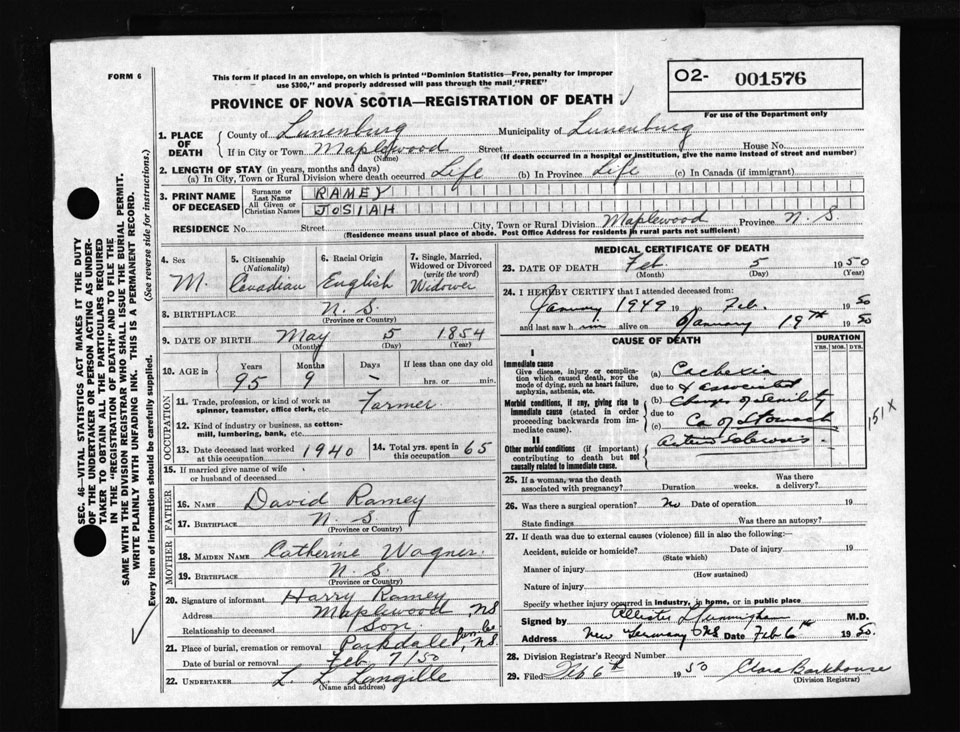 FORM 6
This form if placed in an envelope, on which is printed "Dominion Statistics—Free, penalty for improper
use $300," and properly addressed will pass through the mail "FREE"
O2- 001576
PROVINCE OF NOVA SCOTIA—REGISTRATION OF DEATH
For use of the Department only
1. PLACE OF DEATH
County of Lunenburg Municipality of Lunenburg
If in City or Town Maplewood Street House No.
(Name) (If death occurred in a hospital or institution, give the name instead of street and number)
2. LENGTH OF STAY (in years, months and days)
(a) In City, Town or Rural Division where death occurred Life (b) In Province Life (c) In Canada (if immigrant)
3. PRINT NAME OF DECEASED
Surname or Last Name RAMEY
All Given or Christian Names JOSIAH
RESIDENCE No. Street City, Town or Rural Division Maplewood Province N. S.
(Residence means usual place of abode. Post Office Address for residents in rural parts not sufficient)
4. Sex M.
5. Citizenship (Nationality) Canadian
6. Racial Origin English
7. Single, Married, Widowed or Divorced (write the word) Widower
8. BIRTHPLACE N. S.
(Province or Country)
9. DATE OF BIRTH May 5 1854
(Month) (Day) (Year)
10. AGE in Years Months Days If less than one day old
95 9 – hrs. or min.
OCCUPATION
11. Trade, profession, or kind of work as spinner, teamster, office clerk, etc. Farmer
12. Kind of industry or business, as cotten-mill, lumbering, bank, etc.
13. Date deceased last worked at this occupation 1940
14. Total yrs. spent in this occupation 65
15. If married give name of wife or husband of deceased
FATHER
16. Name David Ramey
17. Birthplace N. S
(Province or Country)
MOTHER
18. Maiden Name Catherine Wagner.
19. Birthplace N. S.
(Province or Country)
20. Signature of informant Harry Ramey
Address Maplewood, NS
Relationship to deceased Son.
21. Place of burial, cremation or removal Parkdale, N.S.
Date of burial or removal Feb 7/50
22. Undertaker L. L. Langille
(Name and address)
MEDICAL CERTIFICATE OF DEATH
23. DATE OF DEATH Feb 5 1950
(Month) (Day) (Year)
24. I HEREBY CERTIFY that I attended deceased from:
January 1949 19 Feb. 1950
and last saw him alive on January 19th 1950
CAUSE OF DEATH
DURATION
YRS. MOS. DYS.
I
Immediate cause
Give disease, injury or complication which caused death, not the mode of dying, such as heart failure, asphyxia, asthenia, etc.
(a) Cachexia
due to & associated
Morbid conditions, if any, giving rise to immediate cause (stated in order proceeding backwards from immediate cause).
(b) Changes of Senility
due to
(c) Ca of Stomach
151 X
II
Other morbid conditions (if important) contributing to death but not causally related to immediate cause.
25. If a woman, was the death associated with pregnancy? Duration weeks. Was there a delivery?
26. Was there a surgical operation? No Date of operation 19
State findings Was there an autopsy?
27. If death was due to external causes (violence) fill in also the following:—
Accident, suicide or homicide? Date of injury 19
(State which)
Manner of injury
(How sustained)
Nature of injury
Specify whether injury occurred in industry, in home, or in public place
Signed by M.D.
Address New Germany NS Date Feb 6th 1950.
28. Division Registrar's Record Number
29. Filed Feb 6th 1950 Clara Barkhouse
(Division Registrar)
SEC. 46—VITAL STATISTICS ACT MAKES IT THE DUTY
OF THE UNDERTAKER OR PERSON ACTING AS UNDER-
TAKER TO OBTAIN ALL THE PARTICULARS REQUIRED
IN THE "REGISTRATION OF DEATH" AND TO FILE THE
SAME WITH THE DIVISION REGISTRAR WHO SHALL ISSUE THE BURIAL PERMIT.
WRITE PLAINLY WITH UNFADING INK. THIS IS A PERMANENT RECORD.
Every item of information should be carefully supplied. (See reverse side for instructions.)